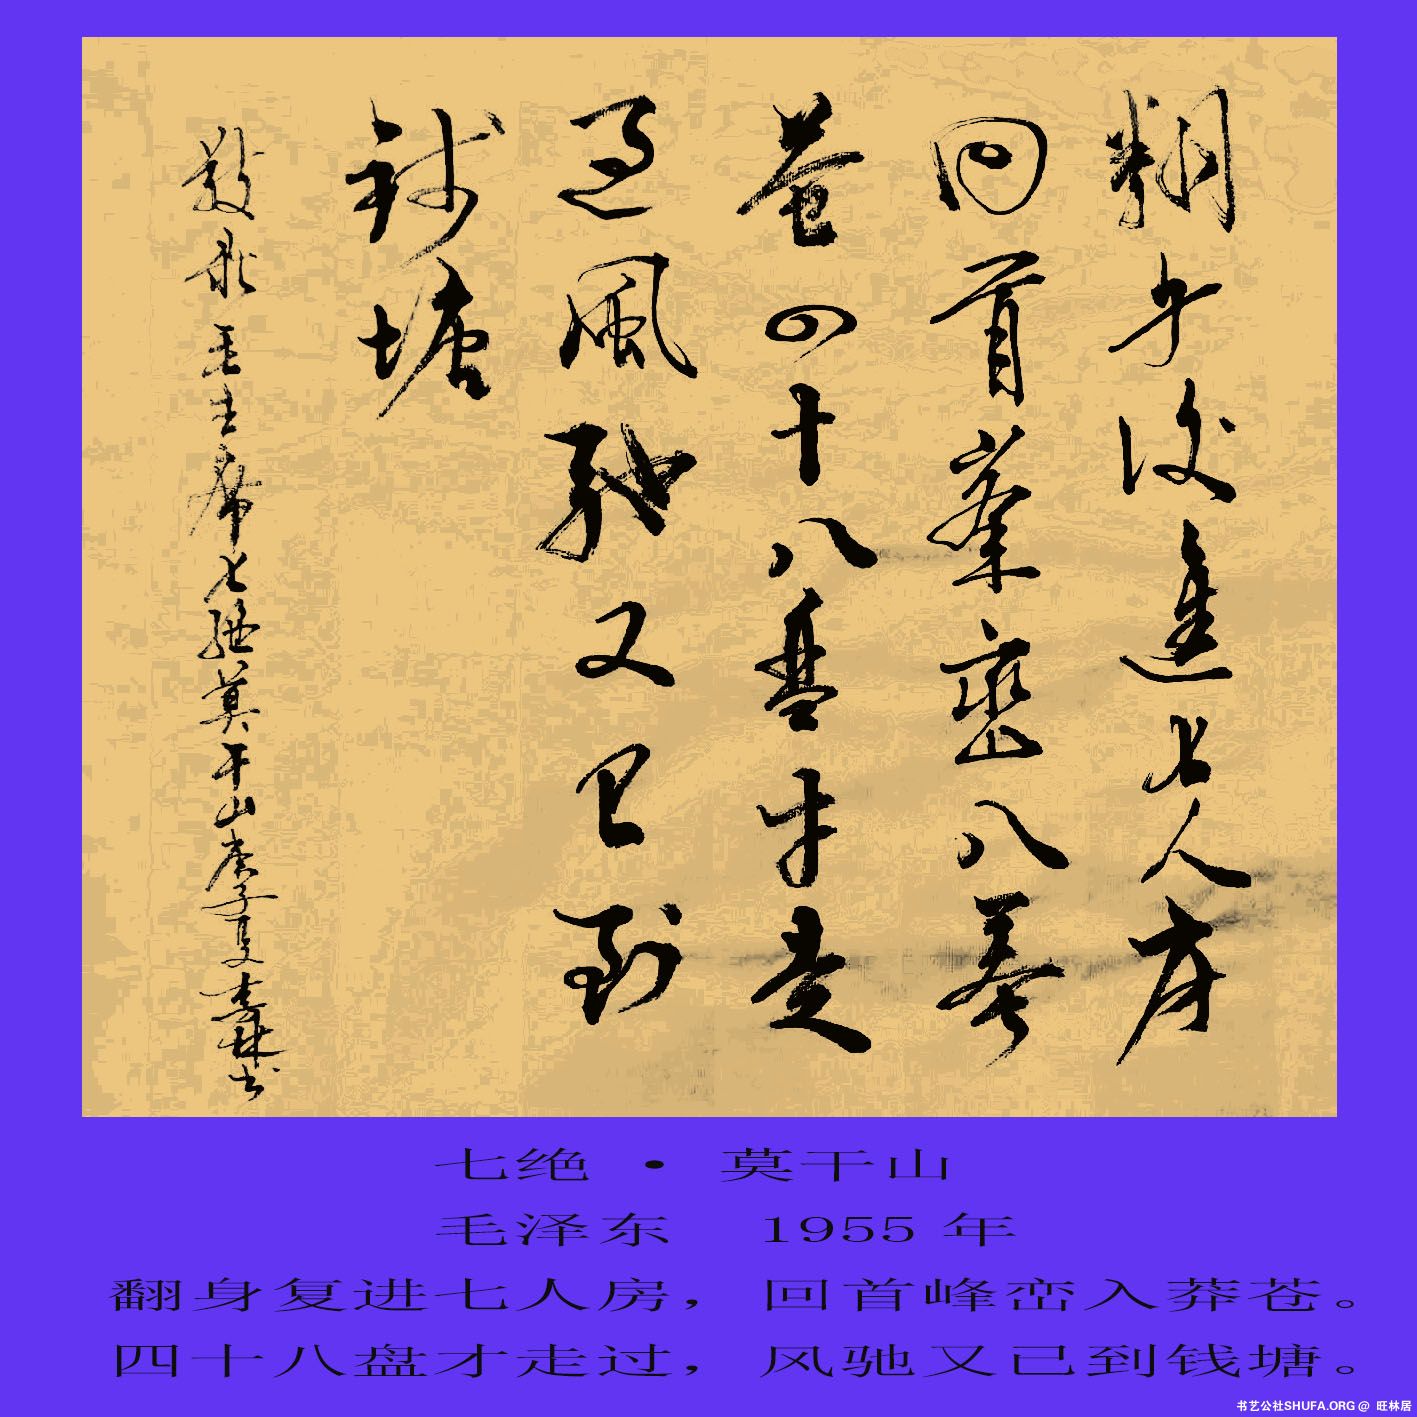 翻身復進七人房
回首峯巒入莽
蒼四十八盤才走
過風馳又已到
錢塘
敬录毛主席七绝莫干山李夏李林书
七绝 · 莫干山
毛泽东 1955 年
翻身复进七人房，回首峰峦入莽苍。
四十八盘才走过，风驰又已到钱塘。
书艺公社SHUFA.ORG @ 旺林居